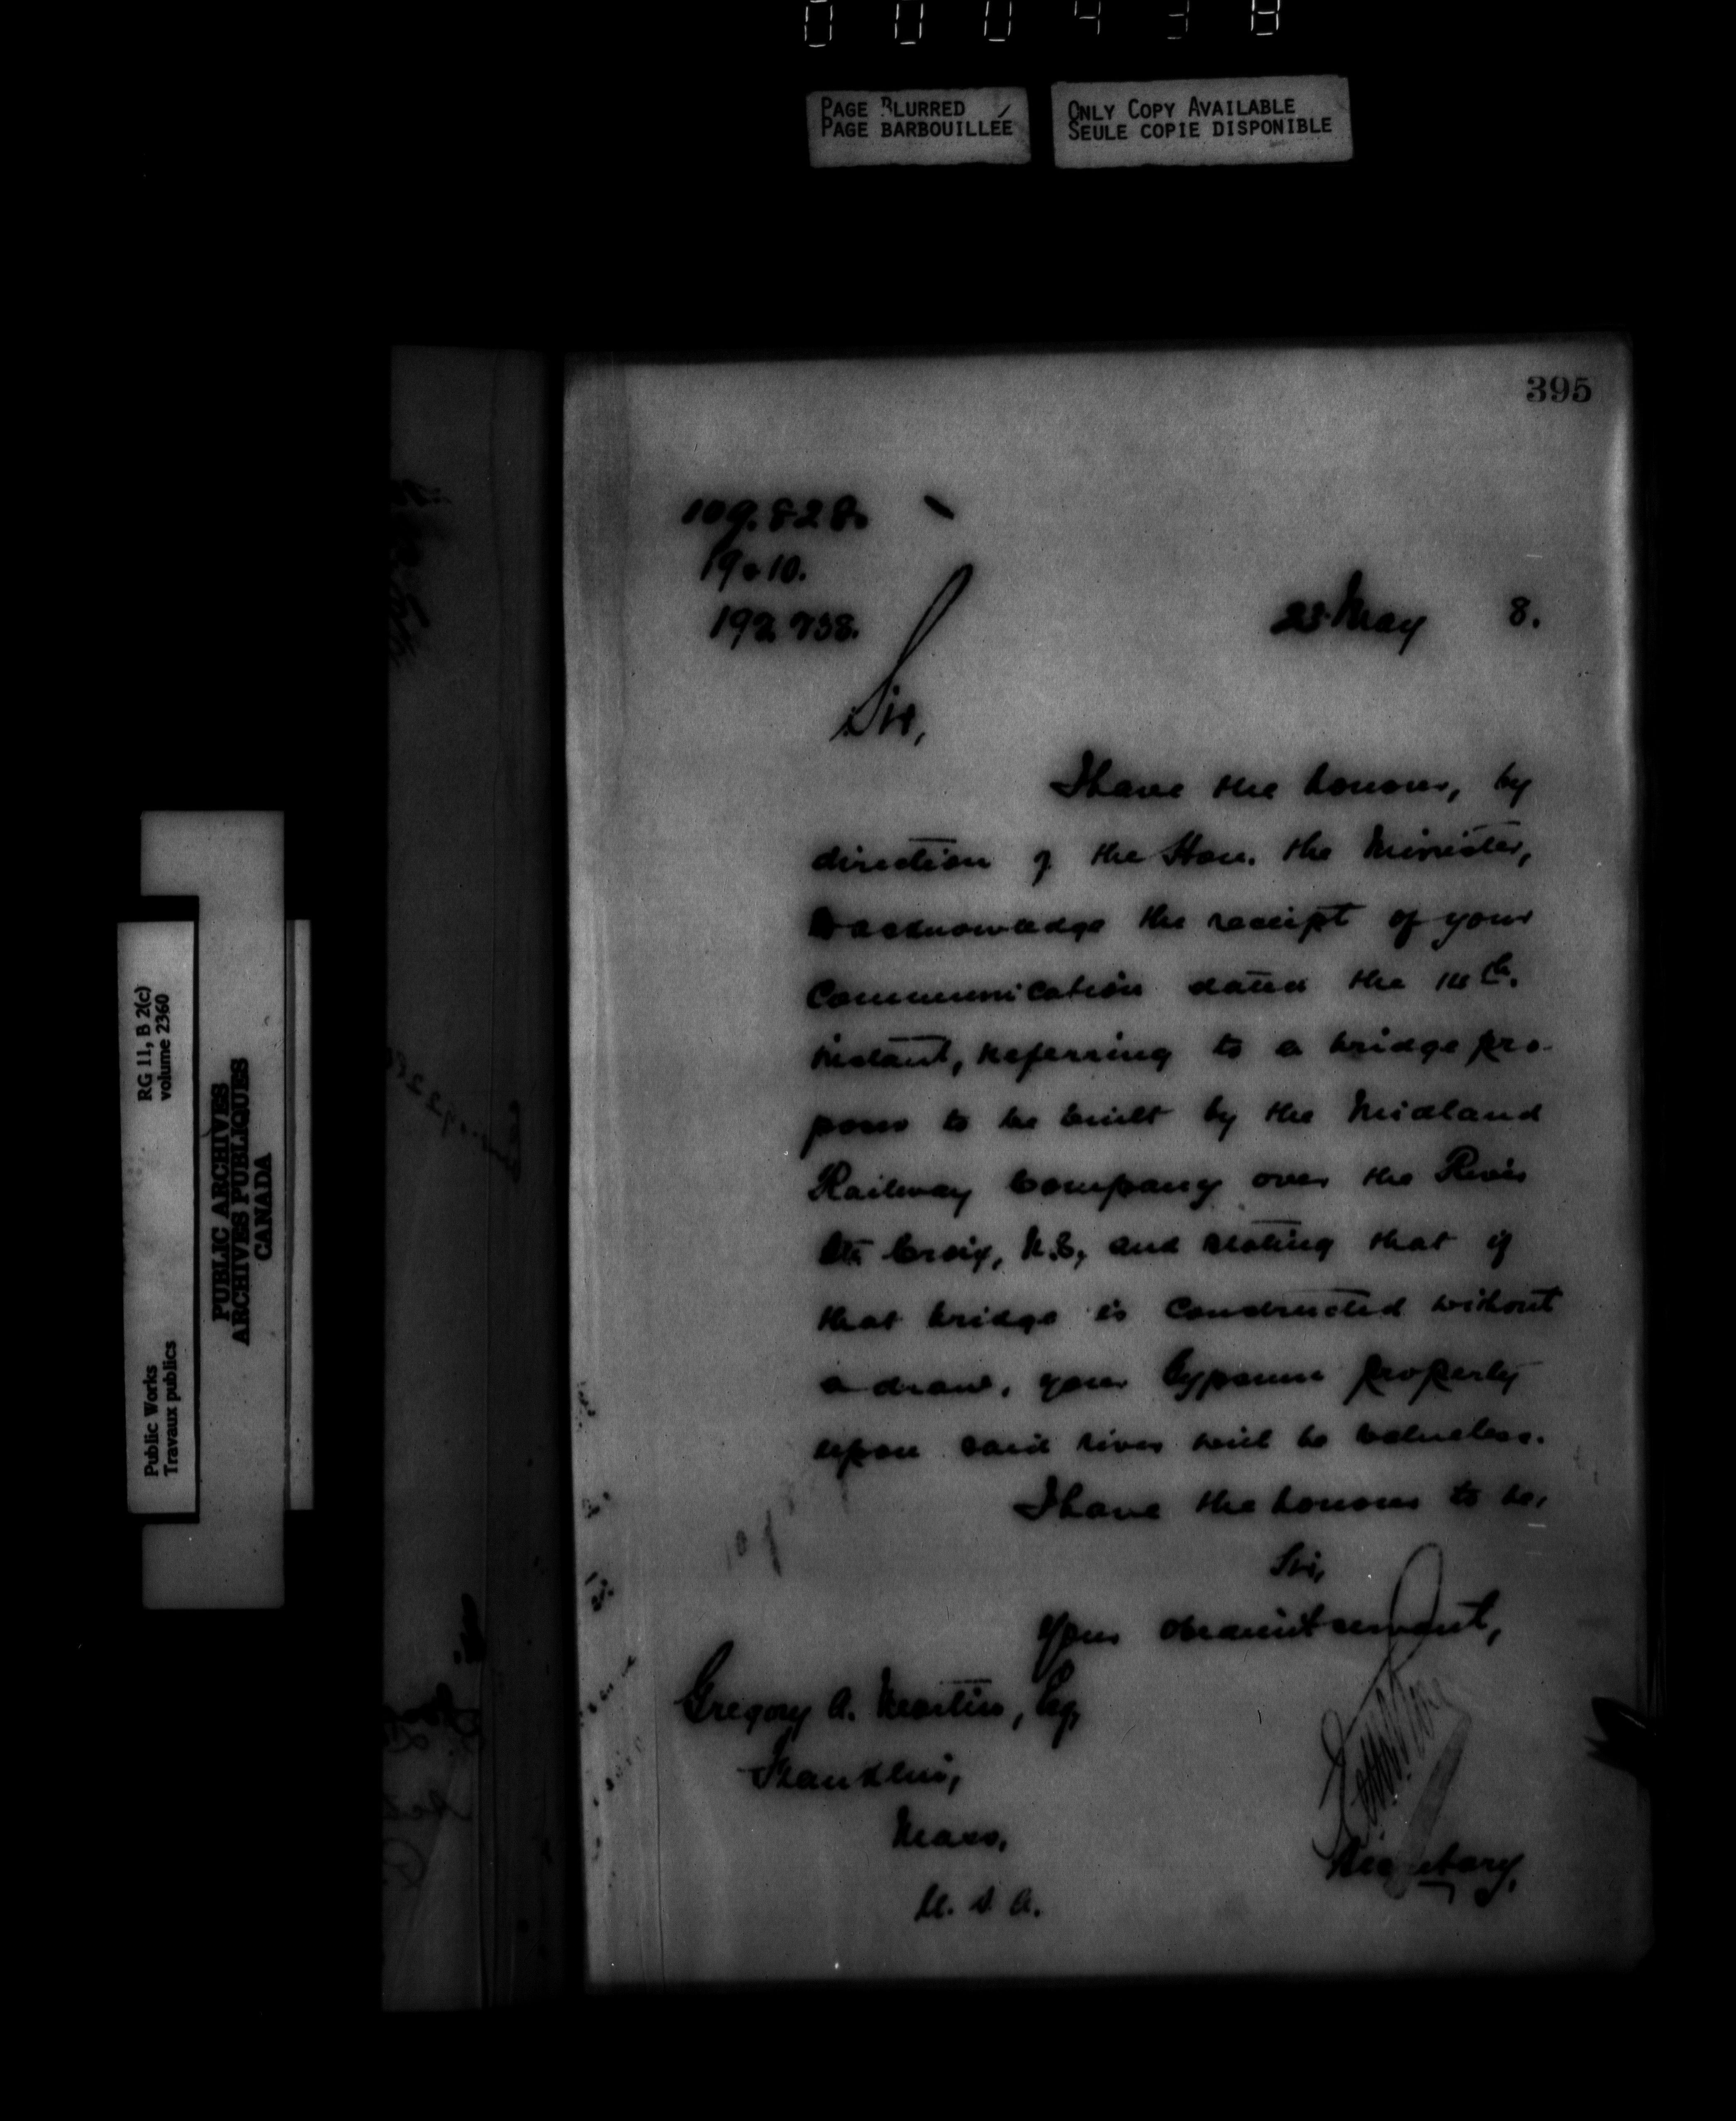 000438
PAGE BLURRED
PAGE BARBOUILLÉE
ONLY COPY AVAILABLE
SEULE COPIE DISPONIBLE
395
109.828.
19010.
192738.
23 May 8.
Sir,
I have the honour, by
direction of the Hon. the Minister,
to acknowledge the receipt of your
Communication dated the
instant, referring to a bridge pro-
posed to be built by the Midland
Railway Company over the River
Ste Croix, N.S, and stating that if
that bridge is Constructed without
a draw, your Gypsum property
upon said river will be valueless.
I have the honour to be,
Sir,
Your obedient servant,
Secretary.
Gregory A. Martin, Esq,
Franklin,
Mass,
U. S. A.
RG 11, B 2(c)
volume 2360
PUBLIC ARCHIVES
ARCHIVES PUBLIQUES
CANADA
Public Works
Travaux publics